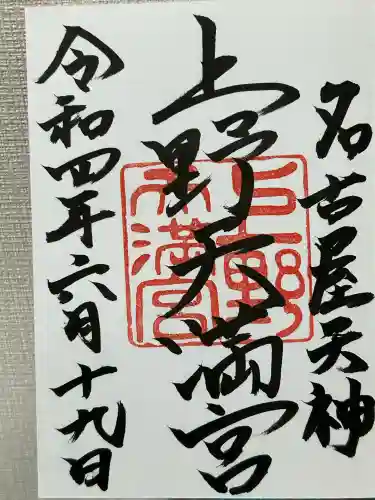 名古屋天神
上野天満宮
令和四年六月十九日
上野
天満宮